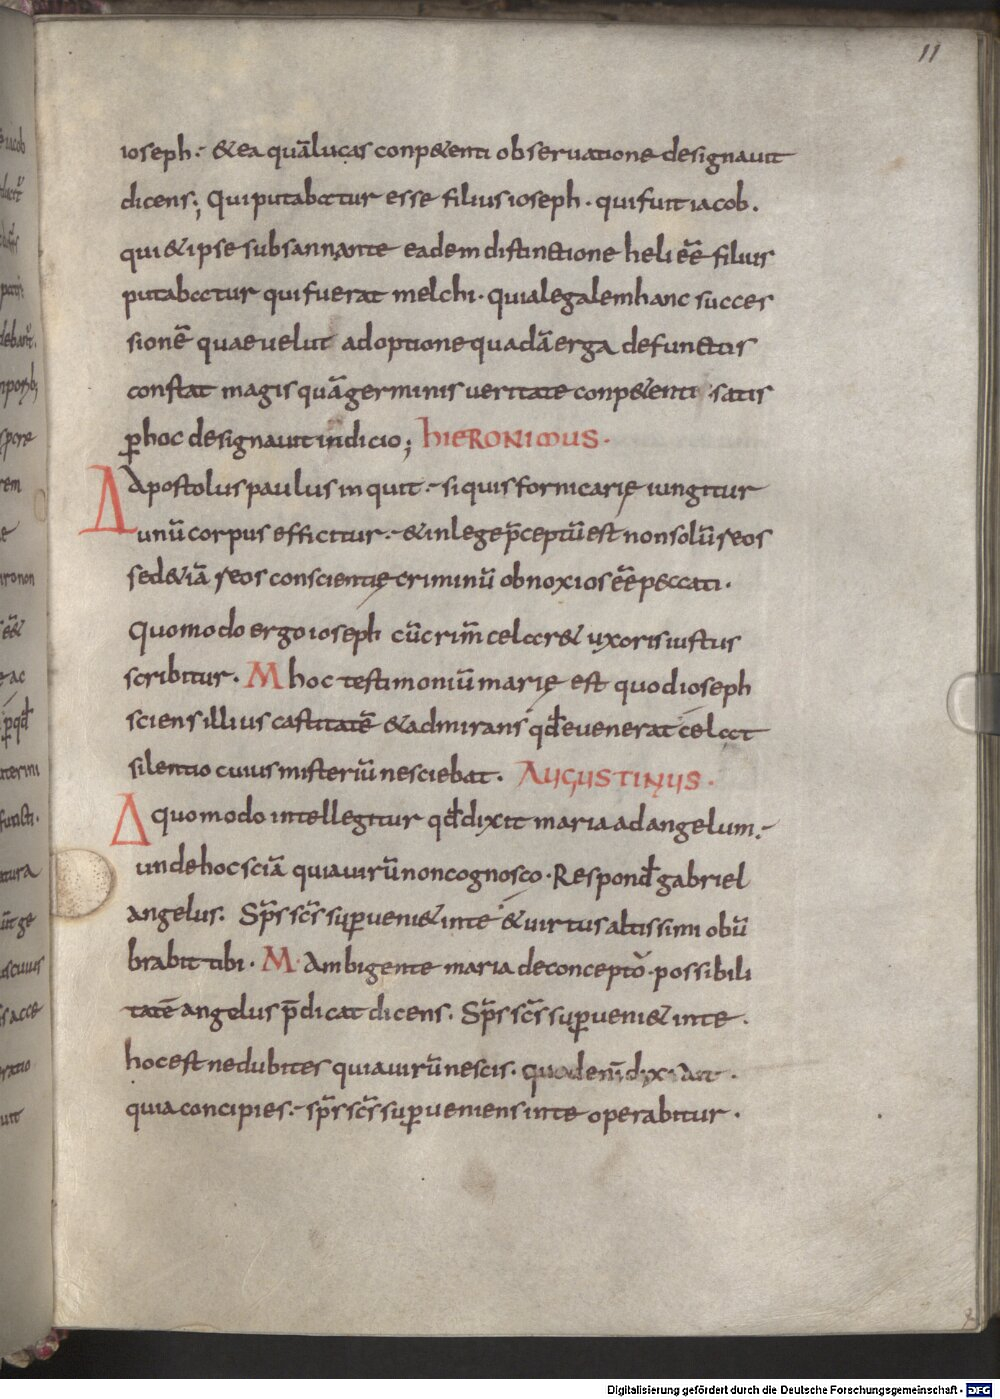 11
ioseph. &ea quā lucas conp&enti observatione designavit
dicens; Qui putabatur esse filius ioseph. qui fuit iacob.
qui & ipse subsannante eadem distinctione heli eē filius
putabatur qui fuerat melchi. quia legalem hanc succes
sionē quae velut adoptione quadā erga defunctis
constat magis quā germinis veritate conp&enti satis
p hoc designavit indicio; HIERONIMUS.
Δ Apostolus paulus inquit. si quis fornicarię iungitur
unū corpus efficitur. & in lege p̄ceptū est non solū reos
sed &iā reos conscientię criminū obnoxios eē peccati.
Quomodo ergo ioseph cū crim̄ celar& uxoris iustus
scribitur. M hoc testimoniū marię est quod ioseph
sciens illius castitatē & admirans qđ evenerat celat
silentio cuius misteriū nesciebat. AUGUSTINUS.
Δ quomodo intellegitur qđ dixit maria ad angelum.
unde hoc sciā quia virū non cognosco. Respond gabriel
angelus. Sp̄s sc̄s superveni& in te & virtus altissimi obū
brabit tibi. M. Ambigente maria de concepto. possibili
tatē angelus p̄dicat dicens. Sp̄s sc̄s superveni& in te.
hoc est ne dubites quia virū nescis. dixit.
quia concipies. sp̄s sc̄s superveniens in te operabitur.
Digitalisierung gefördert durch die Deutsche Forschungsgemeinschaft - DFG